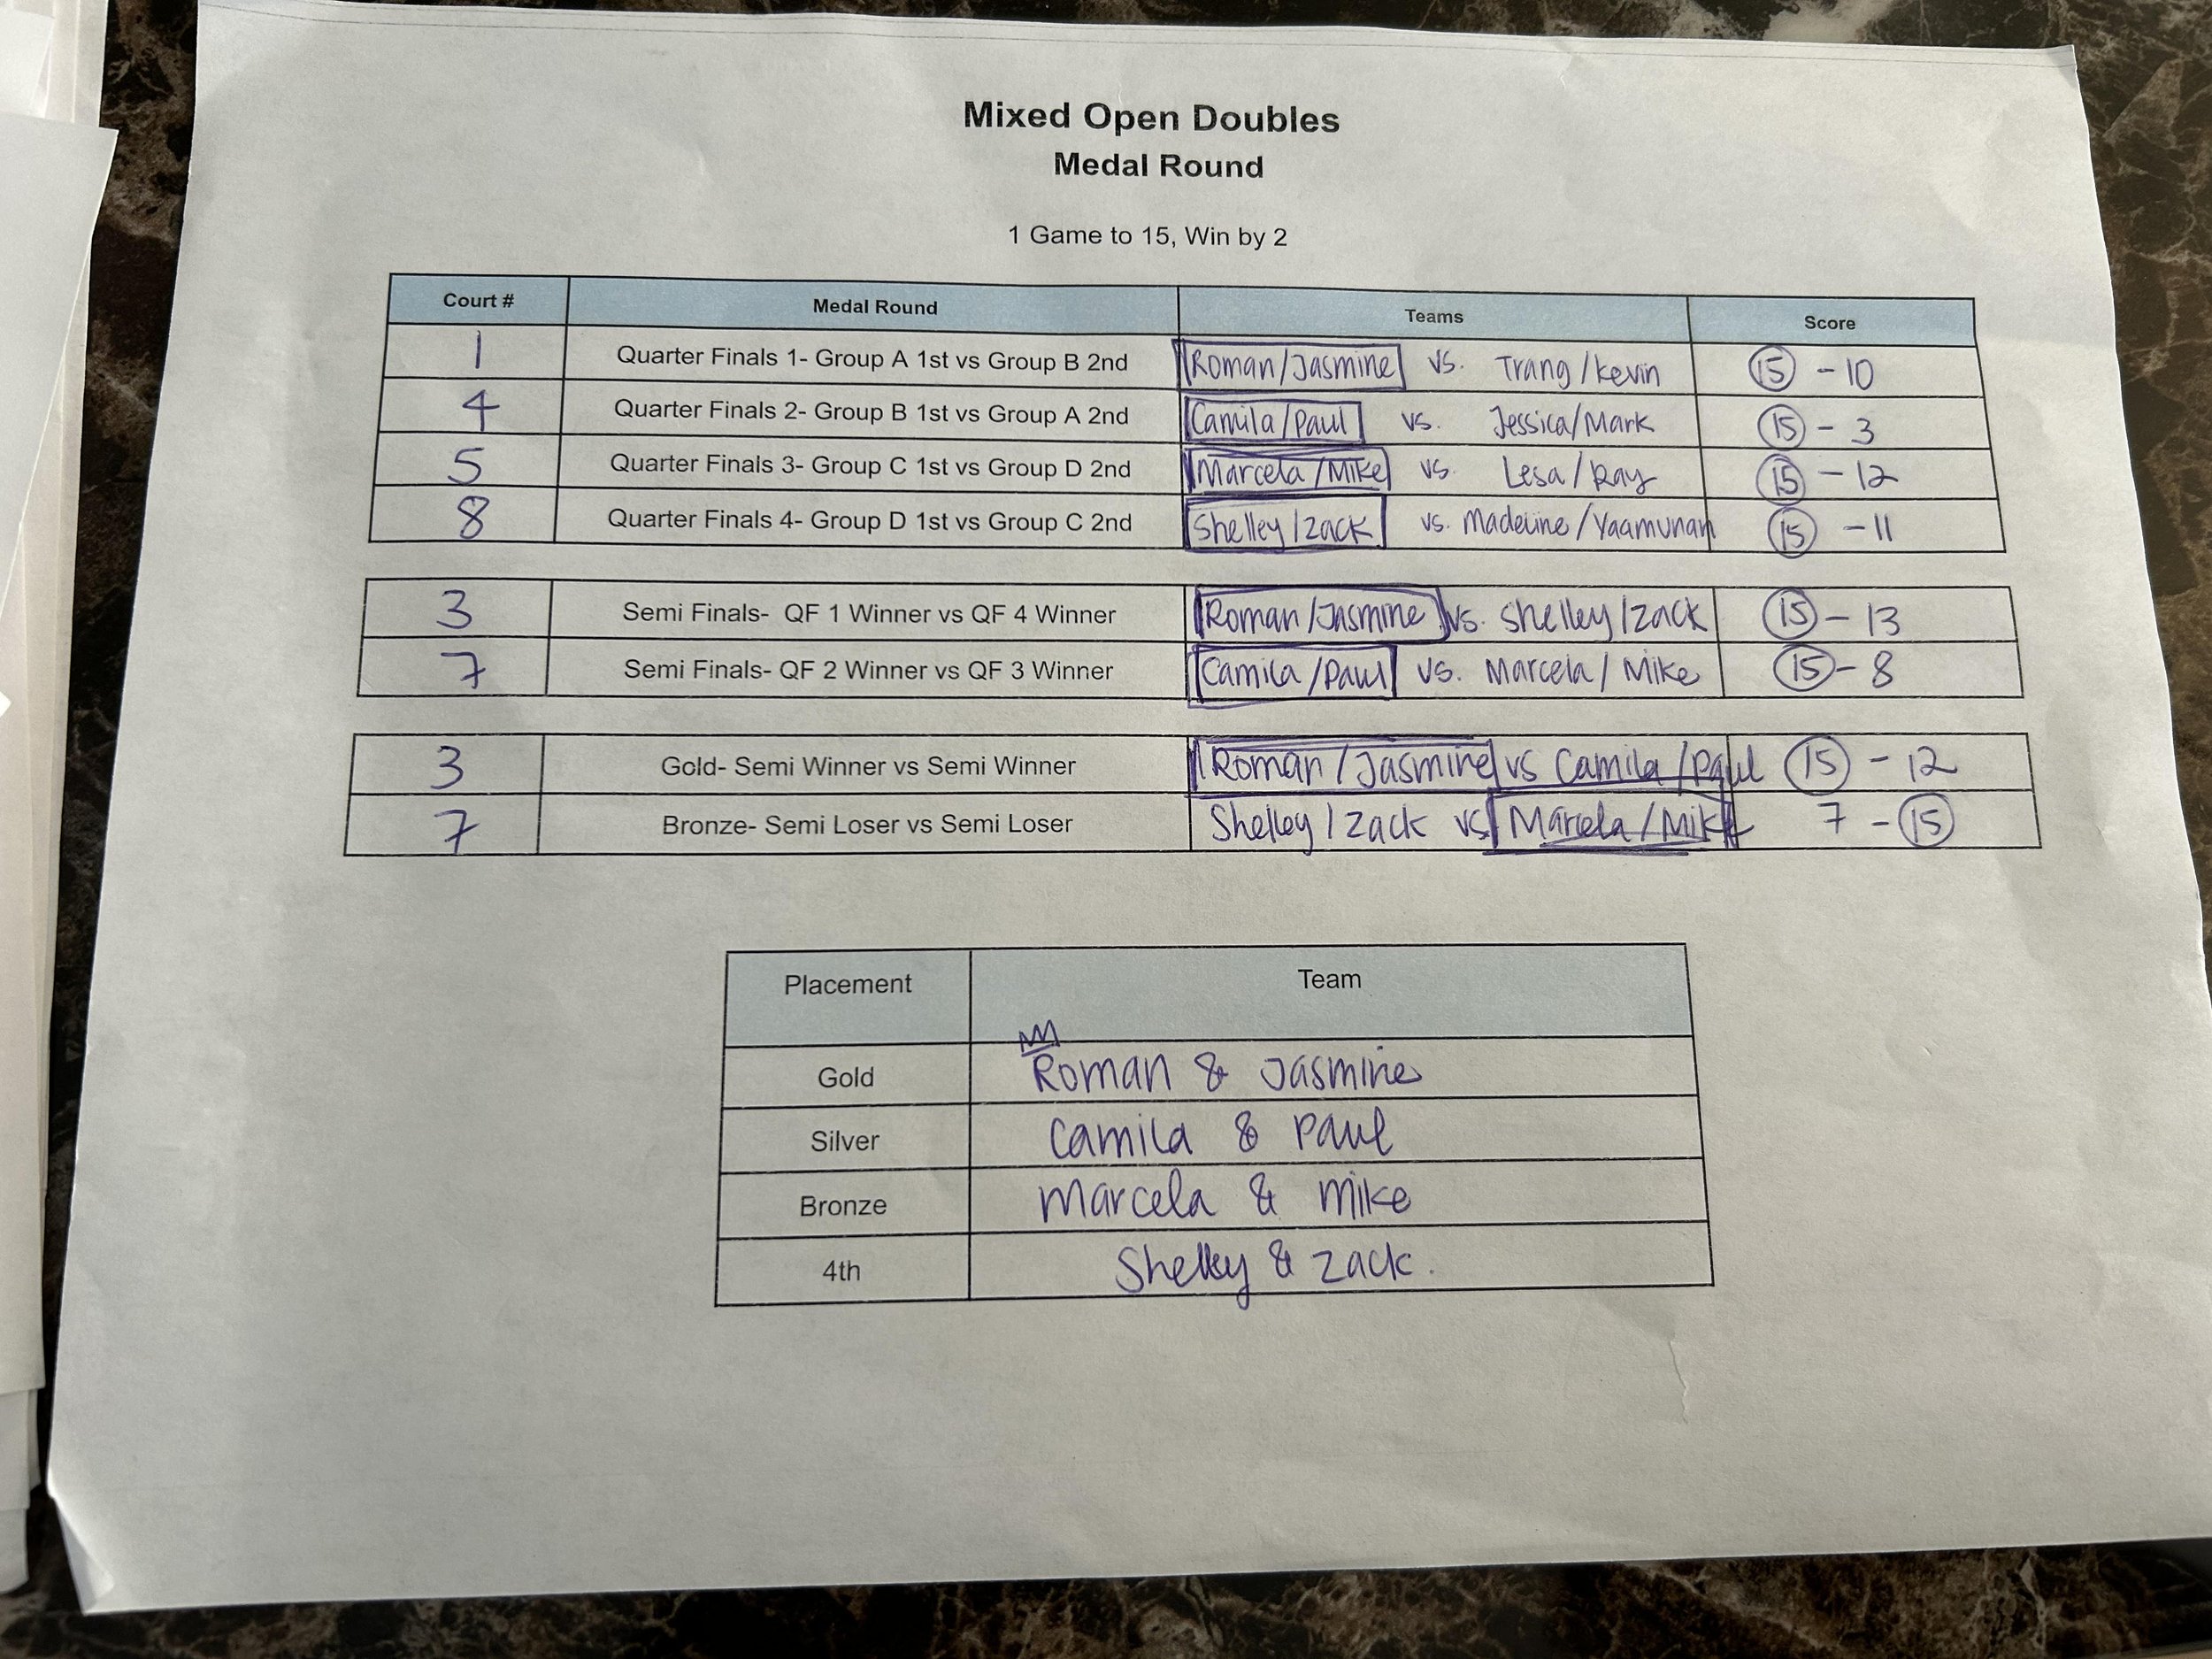 Mixed Open Doubles
Medal Round
1 Game to 15, Win by 2
Court # Medal Round Teams Score
1 Quarter Finals 1- Group A 1st vs Group B 2nd Roman/Jasmine vs. Trang/Kevin 15 - 10
4 Quarter Finals 2- Group B 1st vs Group A 2nd Camila/Paul vs. Jessica/Mark 15 - 3
5 Quarter Finals 3- Group C 1st vs Group D 2nd Marcela/Mike vs. Lesa/Ray 15 - 12
8 Quarter Finals 4- Group D 1st vs Group C 2nd Shelley/Zack vs. Madeline/Yaamunan 15 - 11
3 Semi Finals- QF 1 Winner vs QF 4 Winner Roman/Jasmine vs. Shelley/Zack 15 - 13
7 Semi Finals- QF 2 Winner vs QF 3 Winner Camila/Paul vs. Marcela/Mike 15 - 8
3 Gold- Semi Winner vs Semi Winner Roman/Jasmine vs Camila/Paul 15 - 12
7 Bronze- Semi Loser vs Semi Loser Shelley/Zack vs Marcela/Mike 7 - 15
Placement Team
Gold Roman & Jasmine
Silver Camila & Paul
Bronze Marcela & Mike
4th Shelley & Zack.